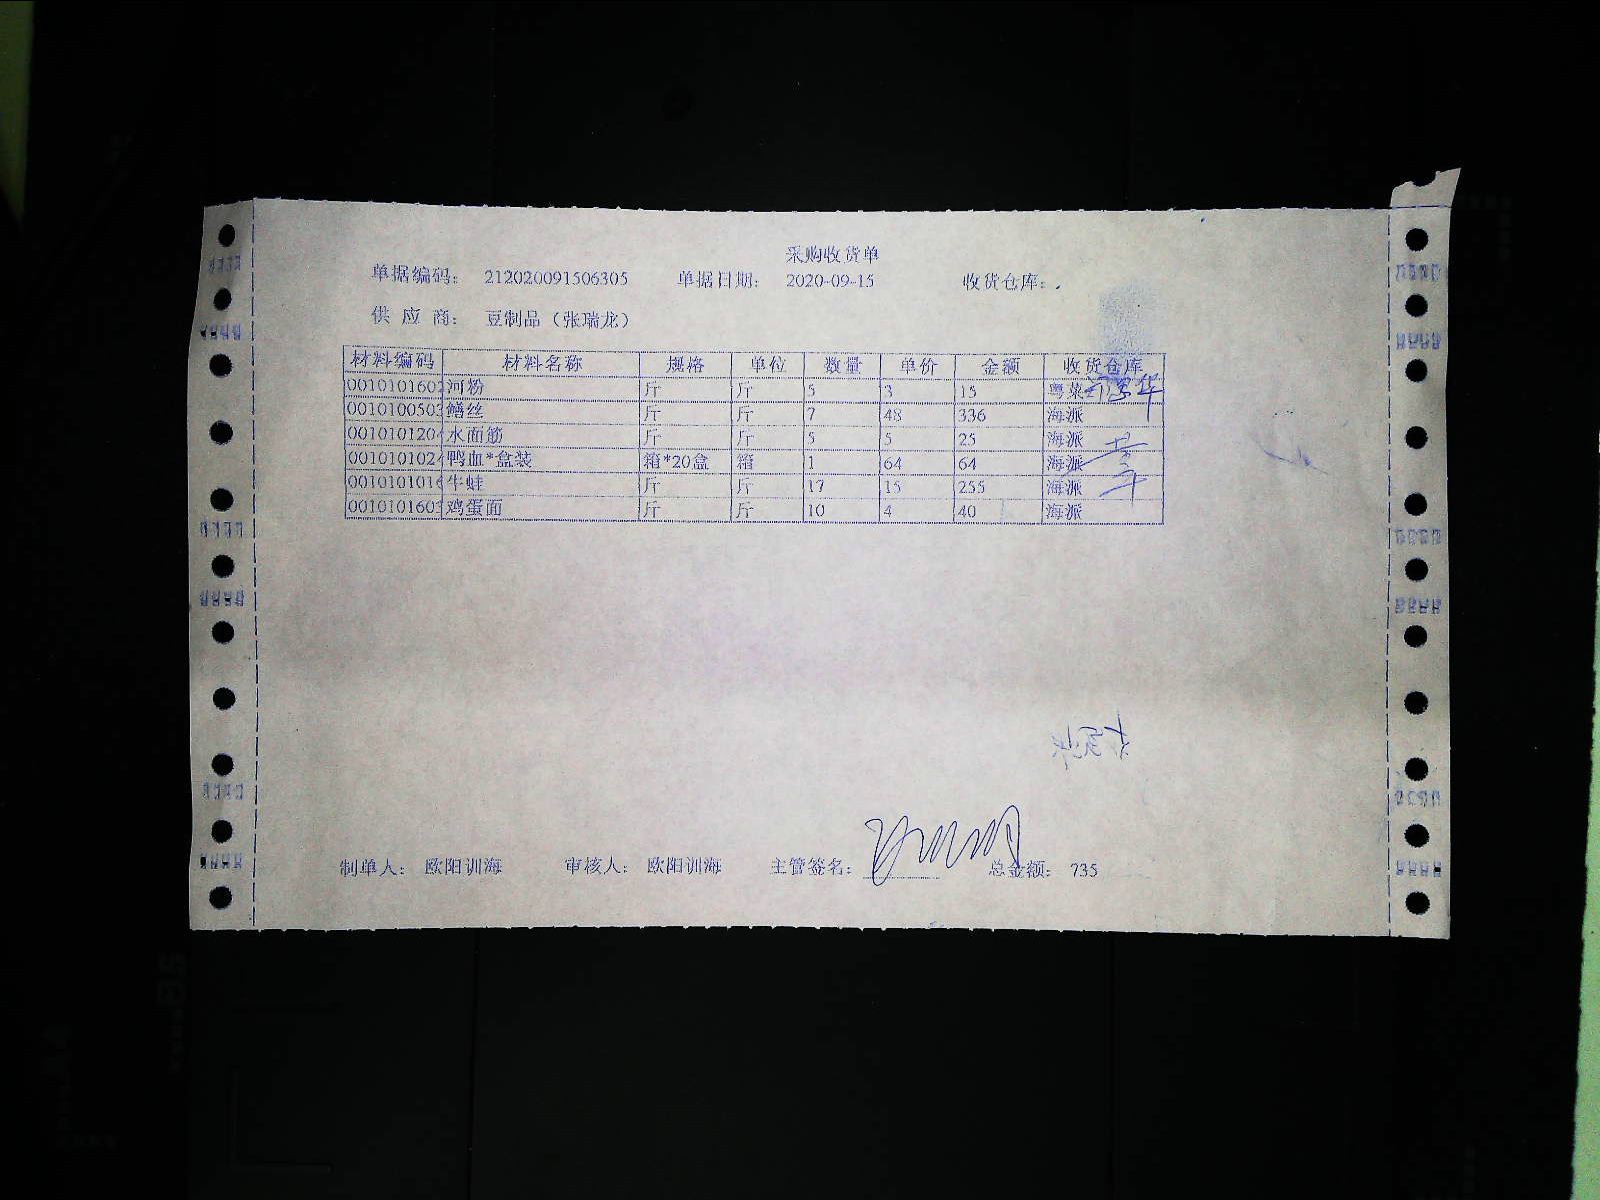 采购收货单
单据编码： 212020091506305 单据日期： 2020-09-15 收货仓库：.
供 应 商： 豆制品（张瑞龙）
材料编码 材料名称 规格 单位 数量 单价 金额 收货仓库
0010101602 河粉 斤 斤 5 3 15 粤菜
0010100503 鳝丝 斤 斤 7 48 336 海派
0010101204 水面筋 斤 斤 5 5 25 海派
0010101024 鸭血*盒装 箱*20盒 箱 1 64 64 海派
0010101016 牛蛙 斤 斤 17 15 255 海派
0010101603 鸡蛋面 斤 斤 10 4 40 海派
制单人： 欧阳训海 审核人： 欧阳训海 主管签名： 总金额： 735